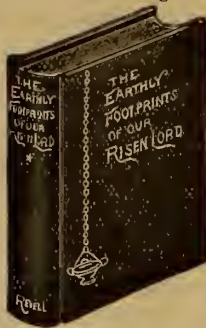 THE
EARTHLY
FOOTPRINTS
OF OUR
RISEN LORD
THE
EARTHLY
FOOTPRINTS
OF OUR
RISEN LORD